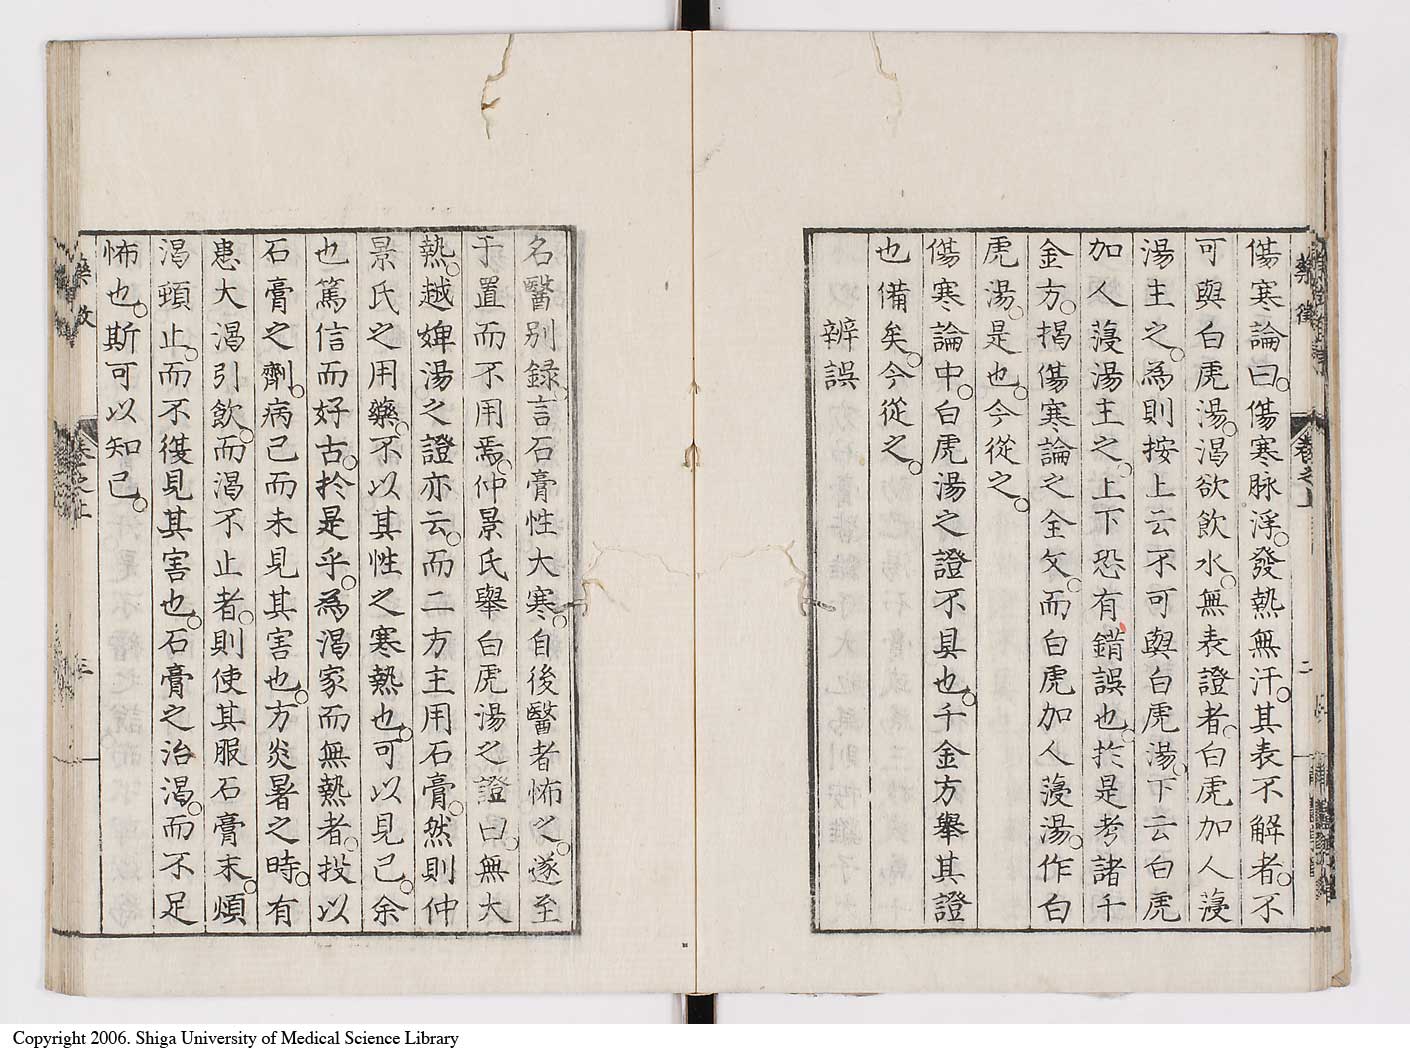 藥徵 卷之上 二
傷寒論曰。傷寒脉浮。發熱無汗。其表不解者。不
可與白虎湯。渴欲飲水。無表證者。白虎加人蓡
湯主之。為則按上云不可與白虎湯。下云白虎
加人蓡湯主之。上下恐有錯誤也。於是考諸千
金方。揭傷寒論之全文。而白虎加人蓡湯。作白
虎湯。是也。今從之。
傷寒論中。白虎湯之證不具也。千金方舉其證
也備矣。今從之。
辨誤
名醫別録。言石膏性大寒。自後醫者怖之。遂至
于置而不用焉。仲景氏舉白虎湯之證曰。無大
熱。越婢湯之證亦云。而二方主用石膏。然則仲
景氏之用藥。不以其性之寒熱也。可以見已。余
也篤信而好古。於是乎。為渴家而無熱者。投以
石膏之劑。病已而未見其害也。方炎暑之時。有
患大渴引飲。而渴不止者。則使其服石膏末。煩
渴頓止。而不復見其害也。石膏之治渴。而不足
怖也。斯可以知已。
卷之上 三
Copyright 2006. Shiga University of Medical Science Library